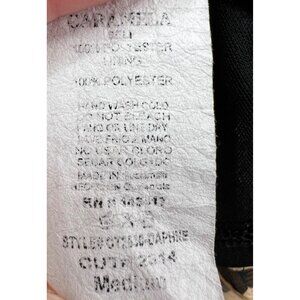 CARAMELA
100% POLYESTER
LINING
100% POLYESTER
HAND WASH COLD
DO NOT BLEACH
HANG OR LINE DRY
LAVE FRIO Z MANO
NO USAR CLORO
SECAR COLGADO
MADE IN
HECHO EN
RN #
STYLE# DAPHNE
CUT# 2314
Medium